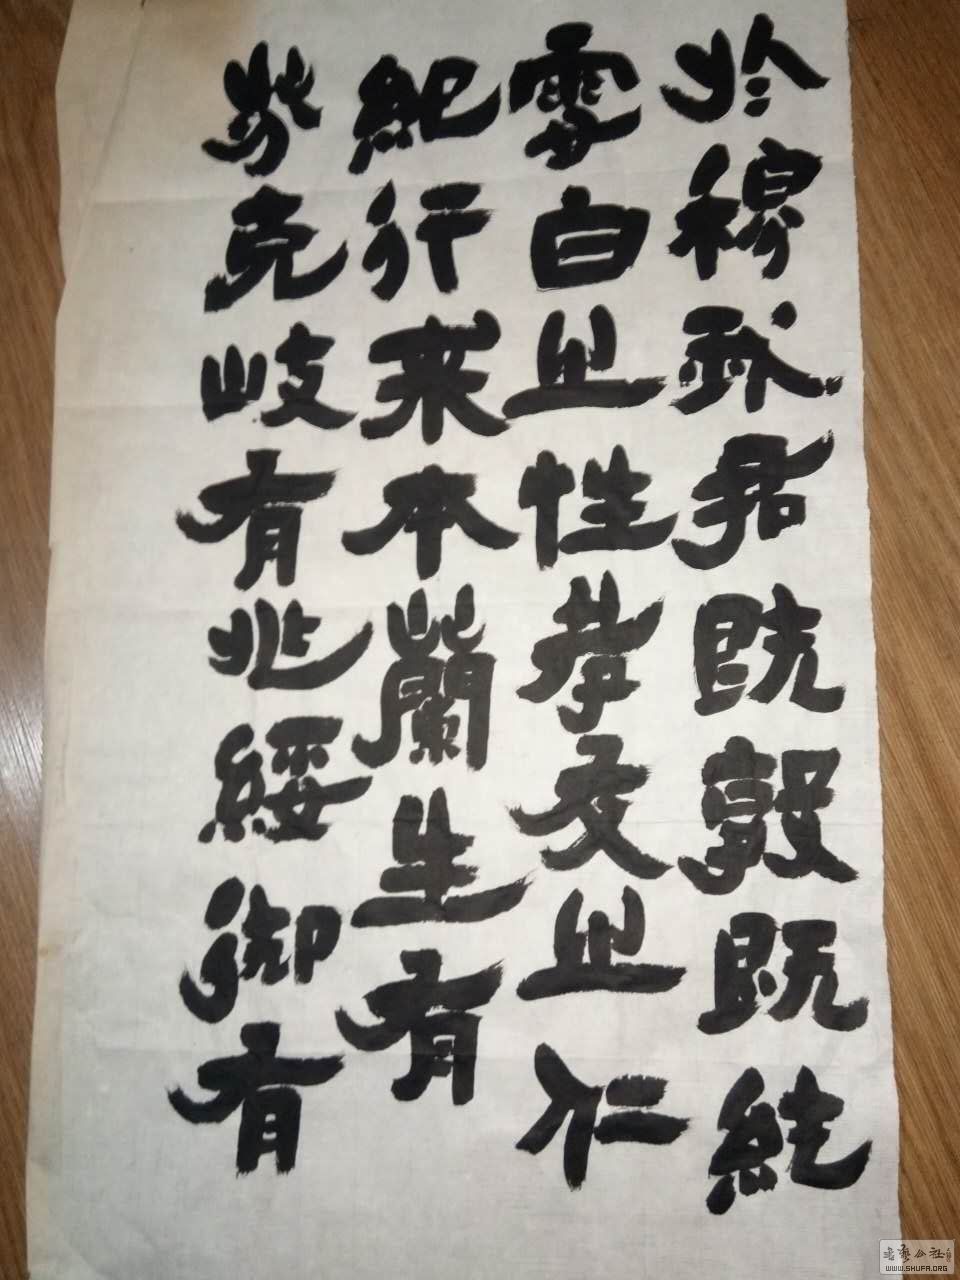 於穆我君既敦既純
雪白之性孝友之仁
紀行来本蘭生有
芬克岐有兆綏御有
WWW.SHUFA.ORG